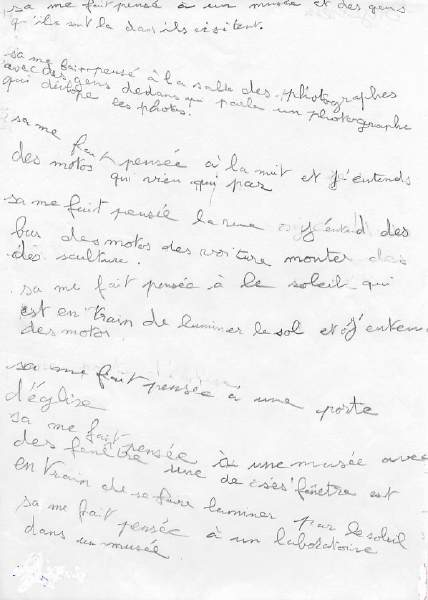 sa me fait pensé a un musée et des gens
qu'ils sont la dans ils existent.
sa me fait pensé à la salle des photographes
avec des gens dedans qui parle un photographe
qui dévlope les photos.
sa me fait pensée à la nuit et j'entends
des motos qui vien qui par
sa me fait pensée la rue j'entend des
bus des motos des voiture monter des
des sculture.
sa me fait pensée à le soleil qui
est en train de luminer le sol et j'enten
des motos
sa me fait pensée à une porte
d'église
sa me fait pensée à une musée avec
des fenêtre une de ses fenêtre est
en train de se faire luminer par le soleil
sa me fait pensée à un laboratoire
dans un musée